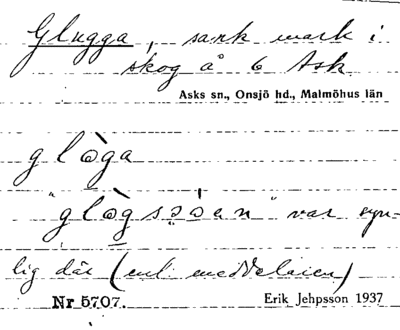 Glugga, sank mark i
skog å 6 Ask
Asks sn., Onsjö hd., Malmöhus län
glòga
"glògsjöen" var syn-
lig där (enl. meddelaren)
Nr 5707. Erik Jehpsson 1937